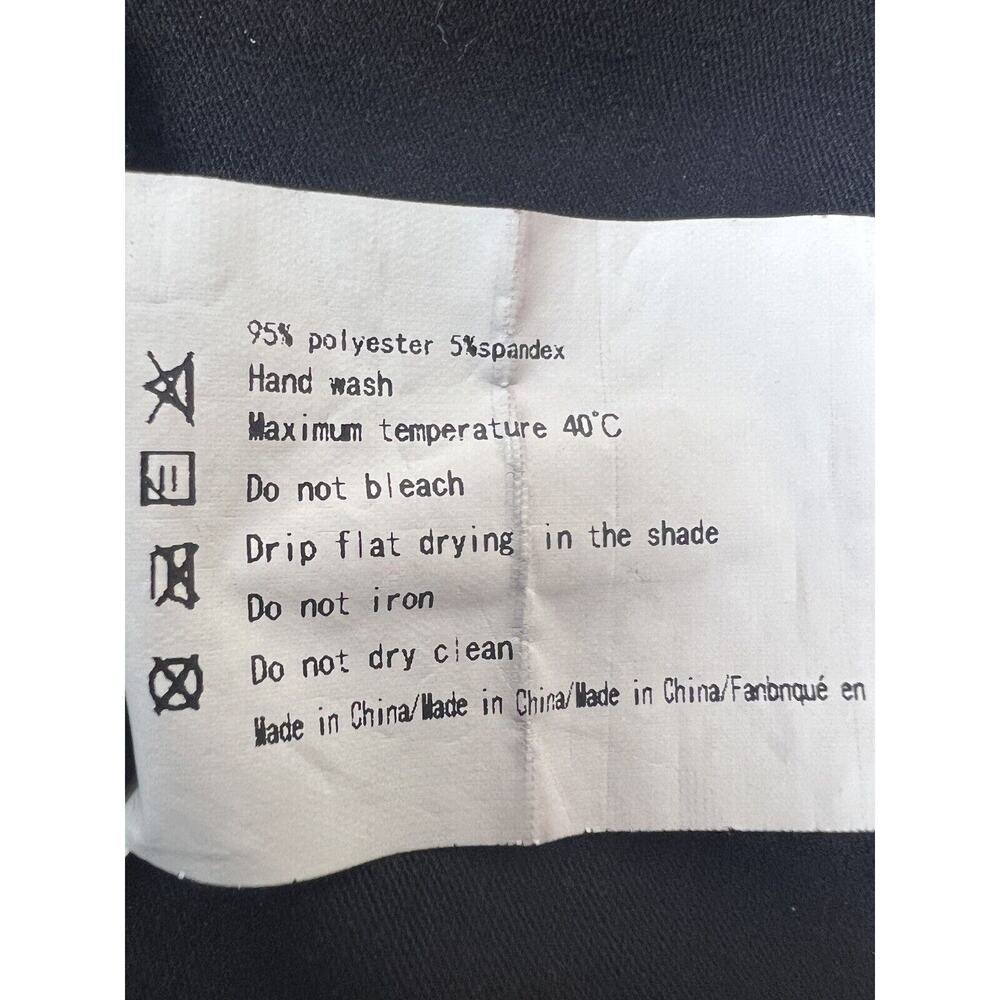 95% polyester 5%spandex
Hand wash
Maximum temperature 40°C
Do not bleach
Drip flat drying in the shade
Do not iron
Do not dry clean
Made in China/Made in China/Made in China/Fanbnqué en